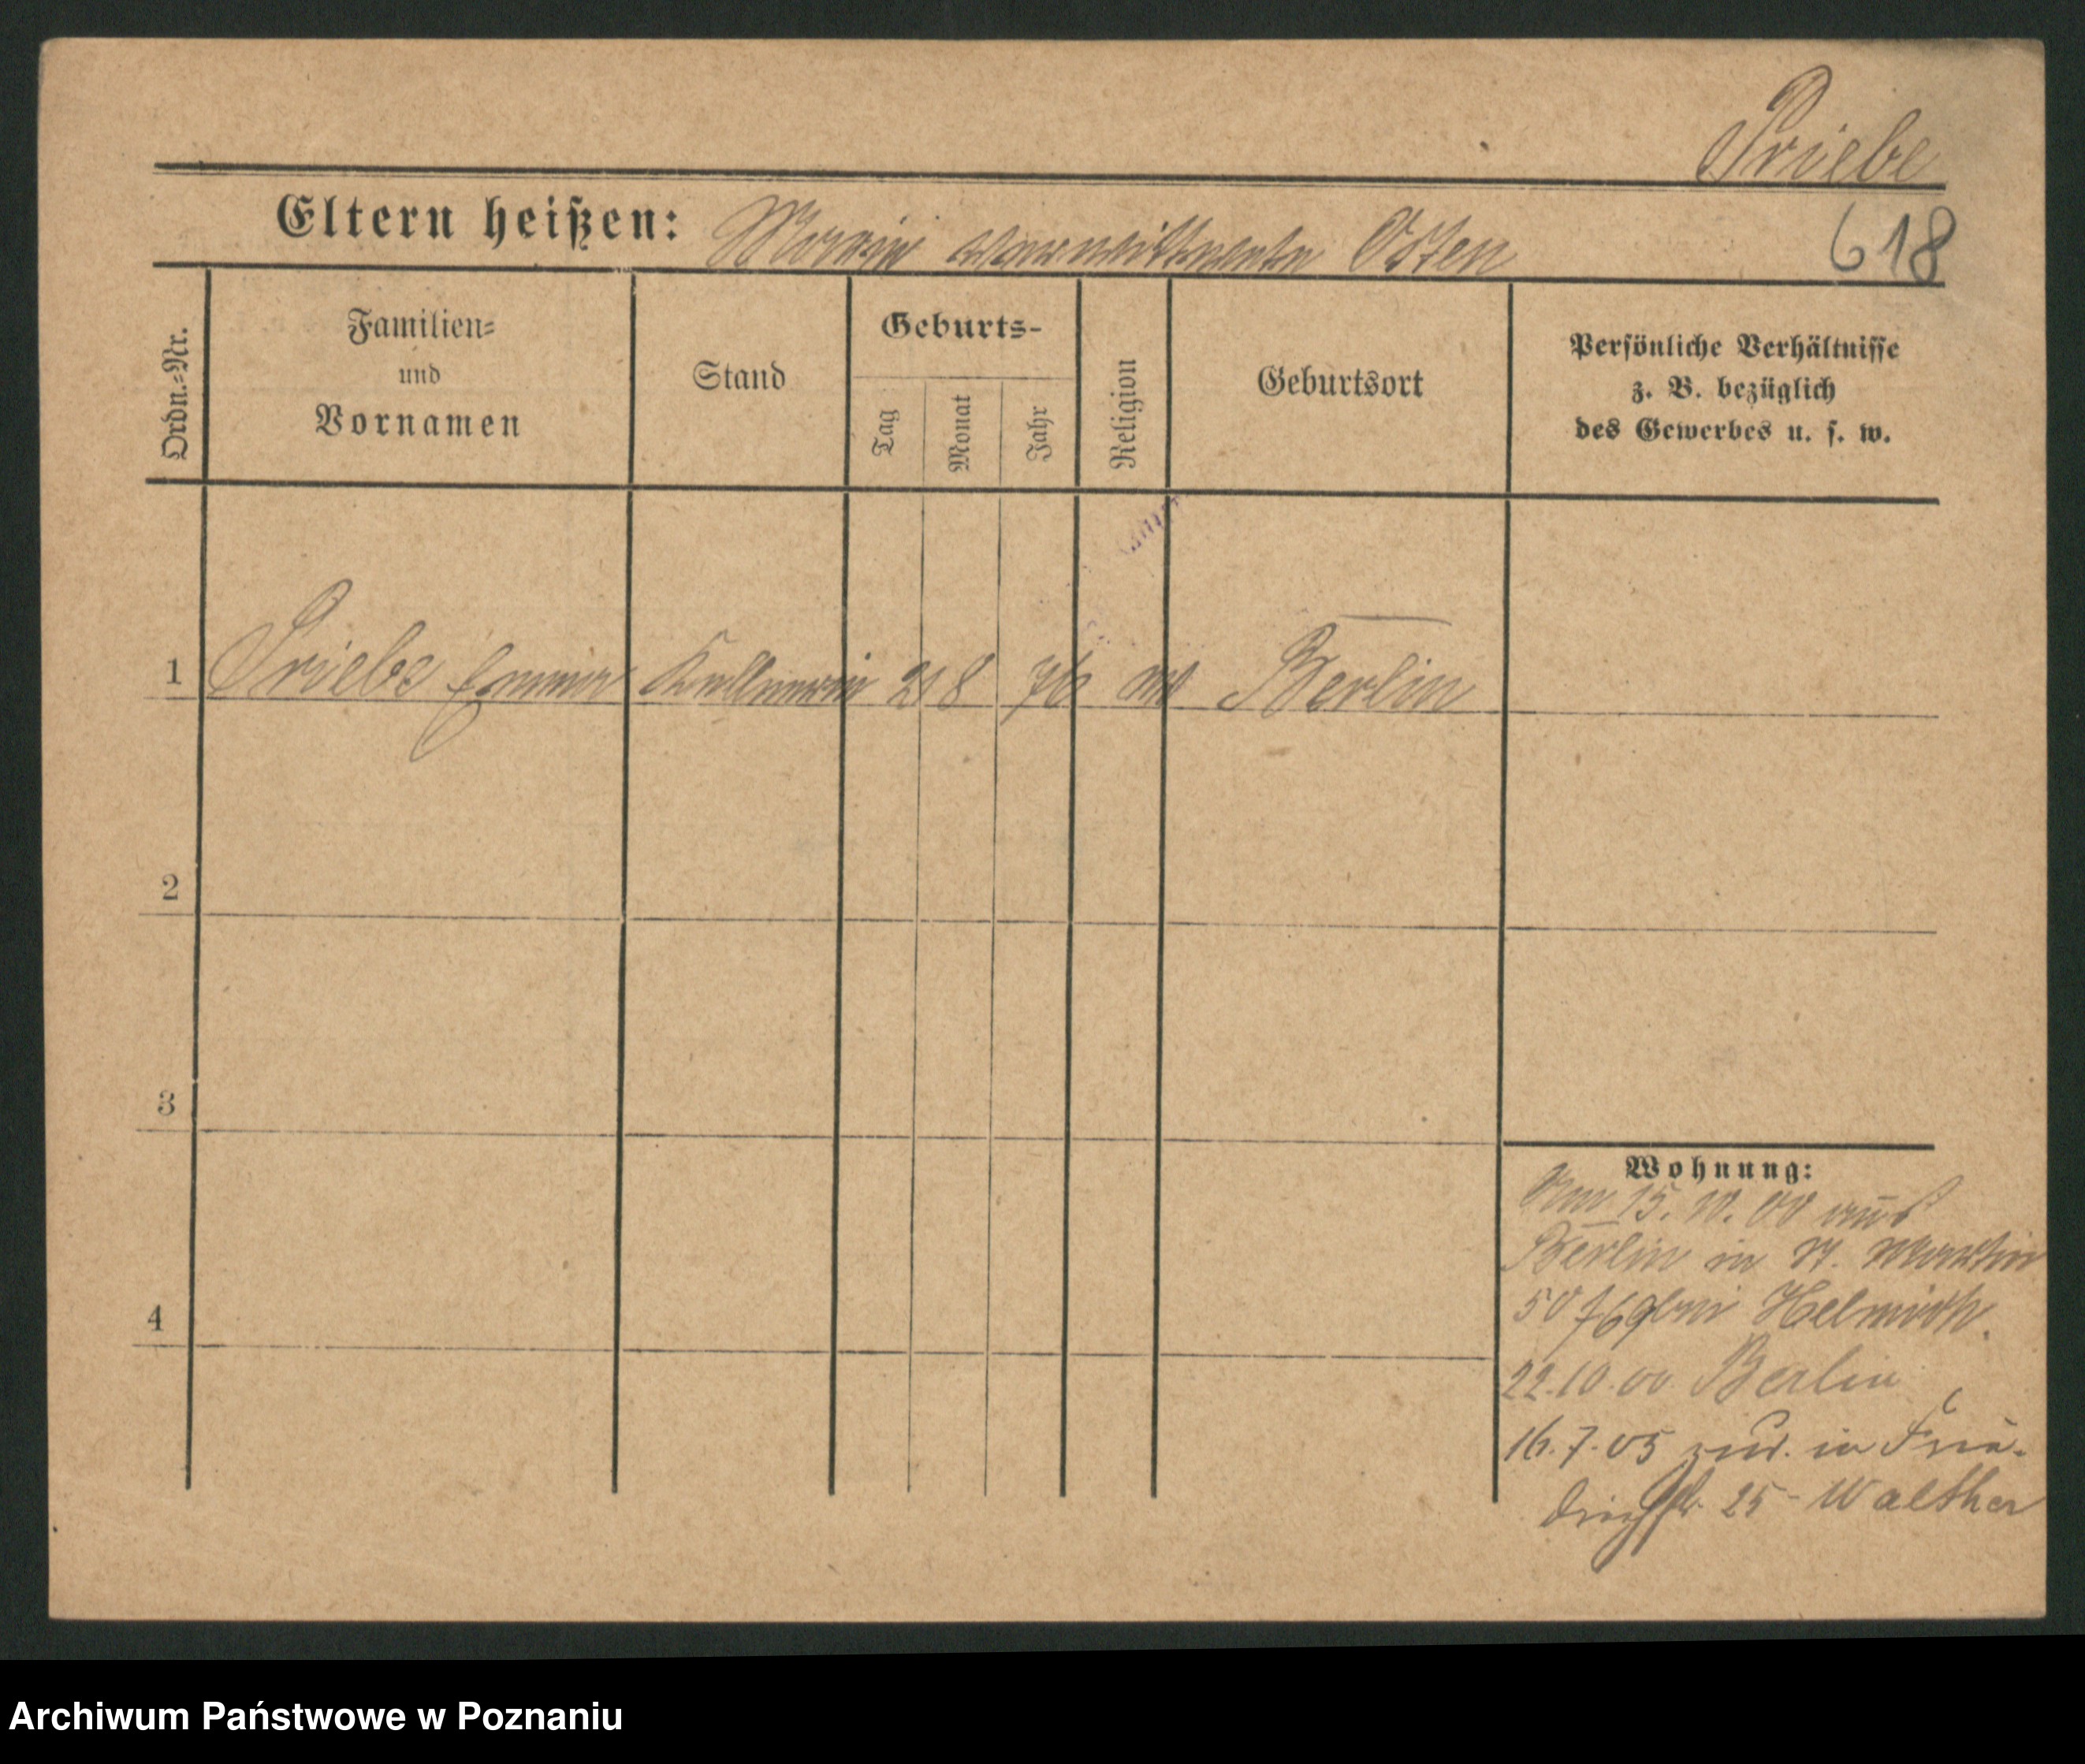 Priebe
Eltern heißen: Marie verwittwete Osten
618
Ordn.-Nr.
Familien-
und
Vornamen
Stand
Geburts-
Tag
Monat
Jahr
Religion
Geburtsort
Persönliche Verhältnisse
z. B. bezüglich
des Gewerbes u. s. w.
1 Priebe Emma Kellnerin 21 8 76 Berlin
2
3
4
Wohnung:
Am 15. 10. 00 aus
Berlin in St. Martin
50 bei Helmuth.
22.10.00 Berlin
16.7.05 zur. in Frie-
drichstr. 25 - Walther
Archiwum Państwowe w Poznaniu